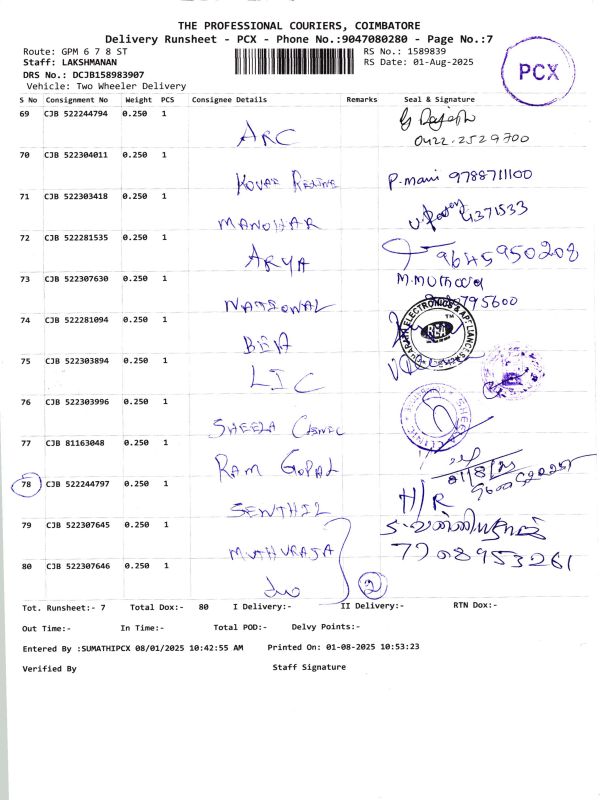 THE PROFESSIONAL COURIERS, COIMBATORE
Delivery Runsheet - PCX - Phone No.:9047080280 - Page No.:7
Route: GPM 6 7 8 ST
RS No.: 1589839
Staff: LAKSHMANAN
RS Date: 01-Aug-2025
DRS No.: DCJB158983907
Vehicle: Two Wheeler Delivery
PCX
S No Consignment No Weight PCS Consignee Details Remarks Seal & Signature
69 CJB 522244794 0.250 1
ARC
0422.2529700
70 CJB 522304011 0.250 1
P. Mani 9788711100
71 CJB 522303418 0.250 1
MANOHAR
72 CJB 522281535 0.250 1
ARYA 9645950208
73 CJB 522307630 0.250 1
NATIONAL
74 CJB 522281094 0.250 1
BEA
75 CJB 522303894 0.250 1
LIC
76 CJB 522303996 0.250 1
SHEELA
77 CJB 81163048 0.250 1
RAM GOPAL
78 CJB 522244797 0.250 1
SENTHIL H/R
79 CJB 522307645 0.250 1
MUTHURAJA 7708953261
80 CJB 522307646 0.250 1
duo 2
Tot. Runsheet:- 7 Total Dox:- 80 I Delivery:- II Delivery:- RTN Dox:-
Out Time:- In Time:- Total POD:- Delvy Points:-
Entered By :SUMATHIPCX 08/01/2025 10:42:55 AM Printed On: 01-08-2025 10:53:23
Verified By Staff Signature